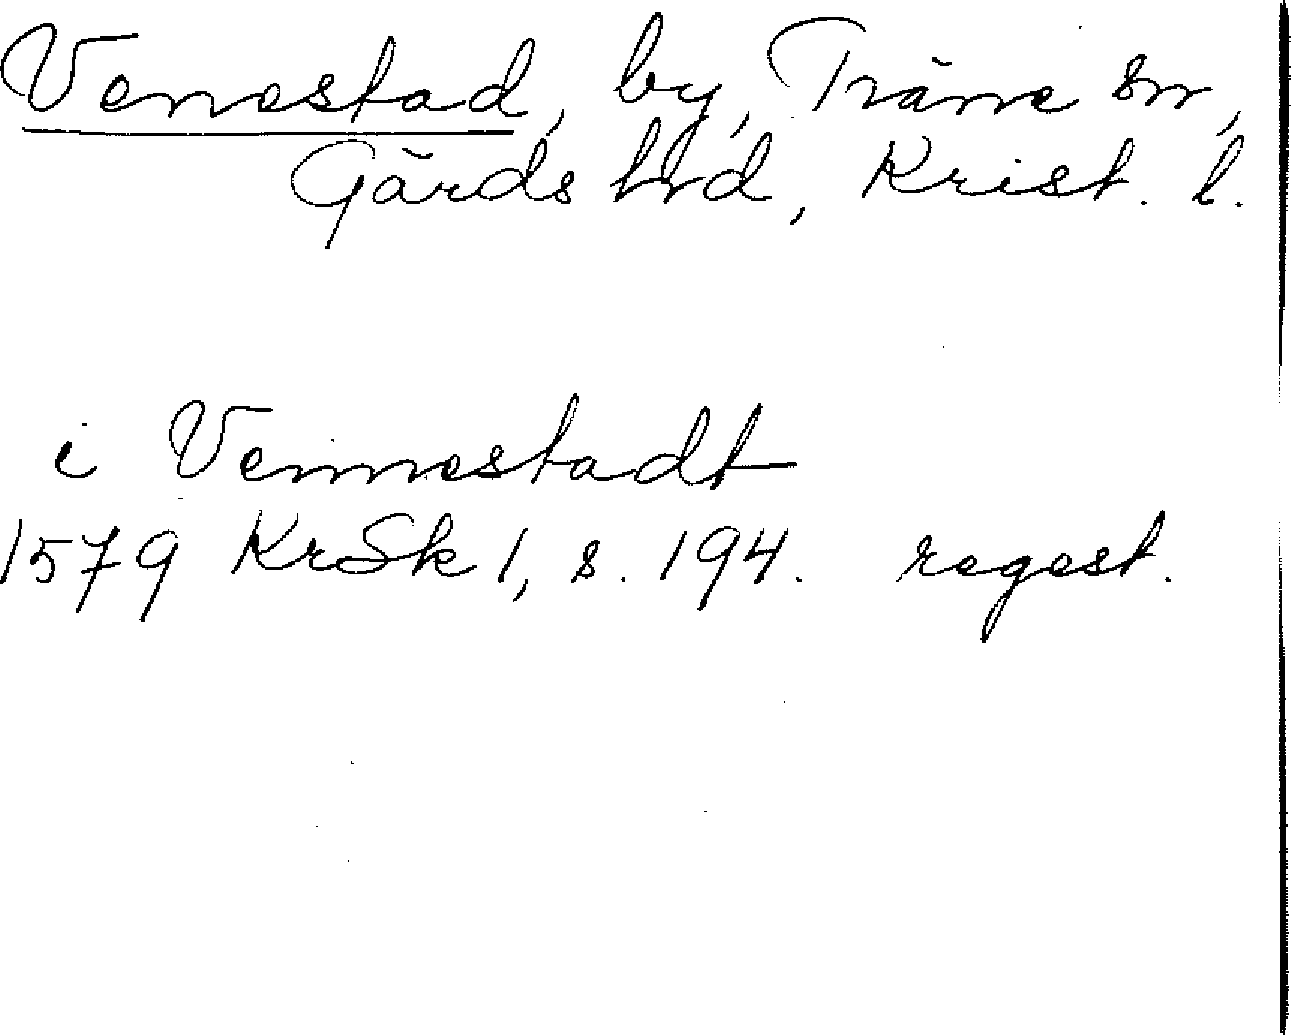 Venestad, by, Träne sn,
Gärds hrd, Krist. l.
i Vennestadt
1579 KrSk 1, s. 194. regest.